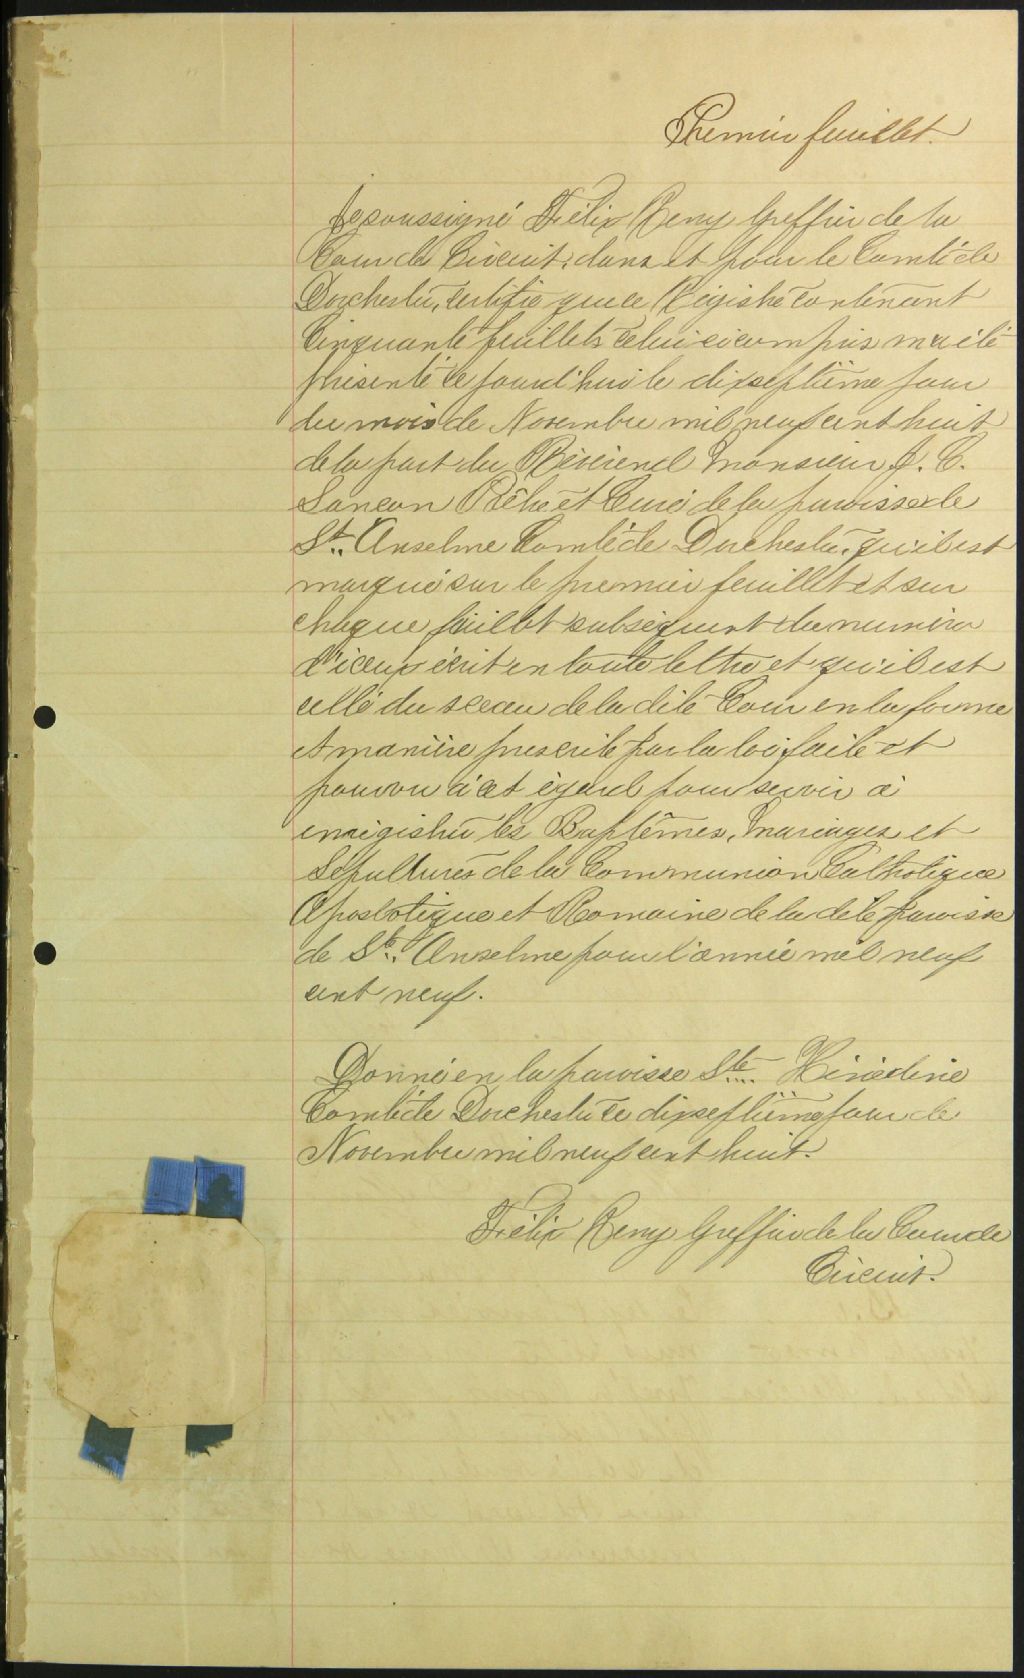 Premier feuillet.
Je soussigné Félix Remy Greffier de la
Cour de Circuit, dans et pour le Comté de
Dorchester, certifie que ce Régistre contenant
Cinquante feuillets celui ci compris m'a été
présenté ce jourd'hui le dixseptième jour
du mois de Novembre mil neuf cent huit
de la part du Révérend Monsieur J. C.
Lanson Prêtre et Curé de la paroisse de
St. Anselme Comté de Dorchester, qu'il est
marqué sur le premier feuillet et sur
chaque feuillet subséquent du numéro
d'iceux écrit en toute lettre et qu'il est
cellé du sceau de la dite Cour en la forme
et manière prescrite par la loi faite et
pourvu à cet égard pour servir à
enrégistrer les Baptêmes, Mariages et
Sépultures de la Communion Catholique
Apostolique et Romaine de la dite paroisse
de St. Anselme pour l'année mil neuf
cent neuf.
Donné en la paroisse Ste. Hénédine
Comté de Dorchester ce dixseptième jour de
Novembre mil neuf cent huit.
Félix Remy Greffier de la Cour de
Circuit.